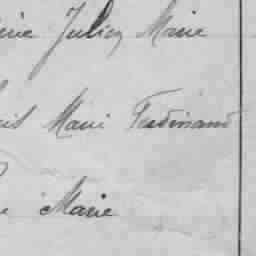 Julien Marie
Marie Ferdinand
Marie